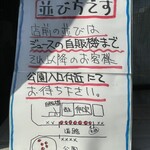 並び方です
店前の並びは
ジュースの自販機まで
それ以降のお客様
公園入口付近にて
お待ち下さい。
道路
公園